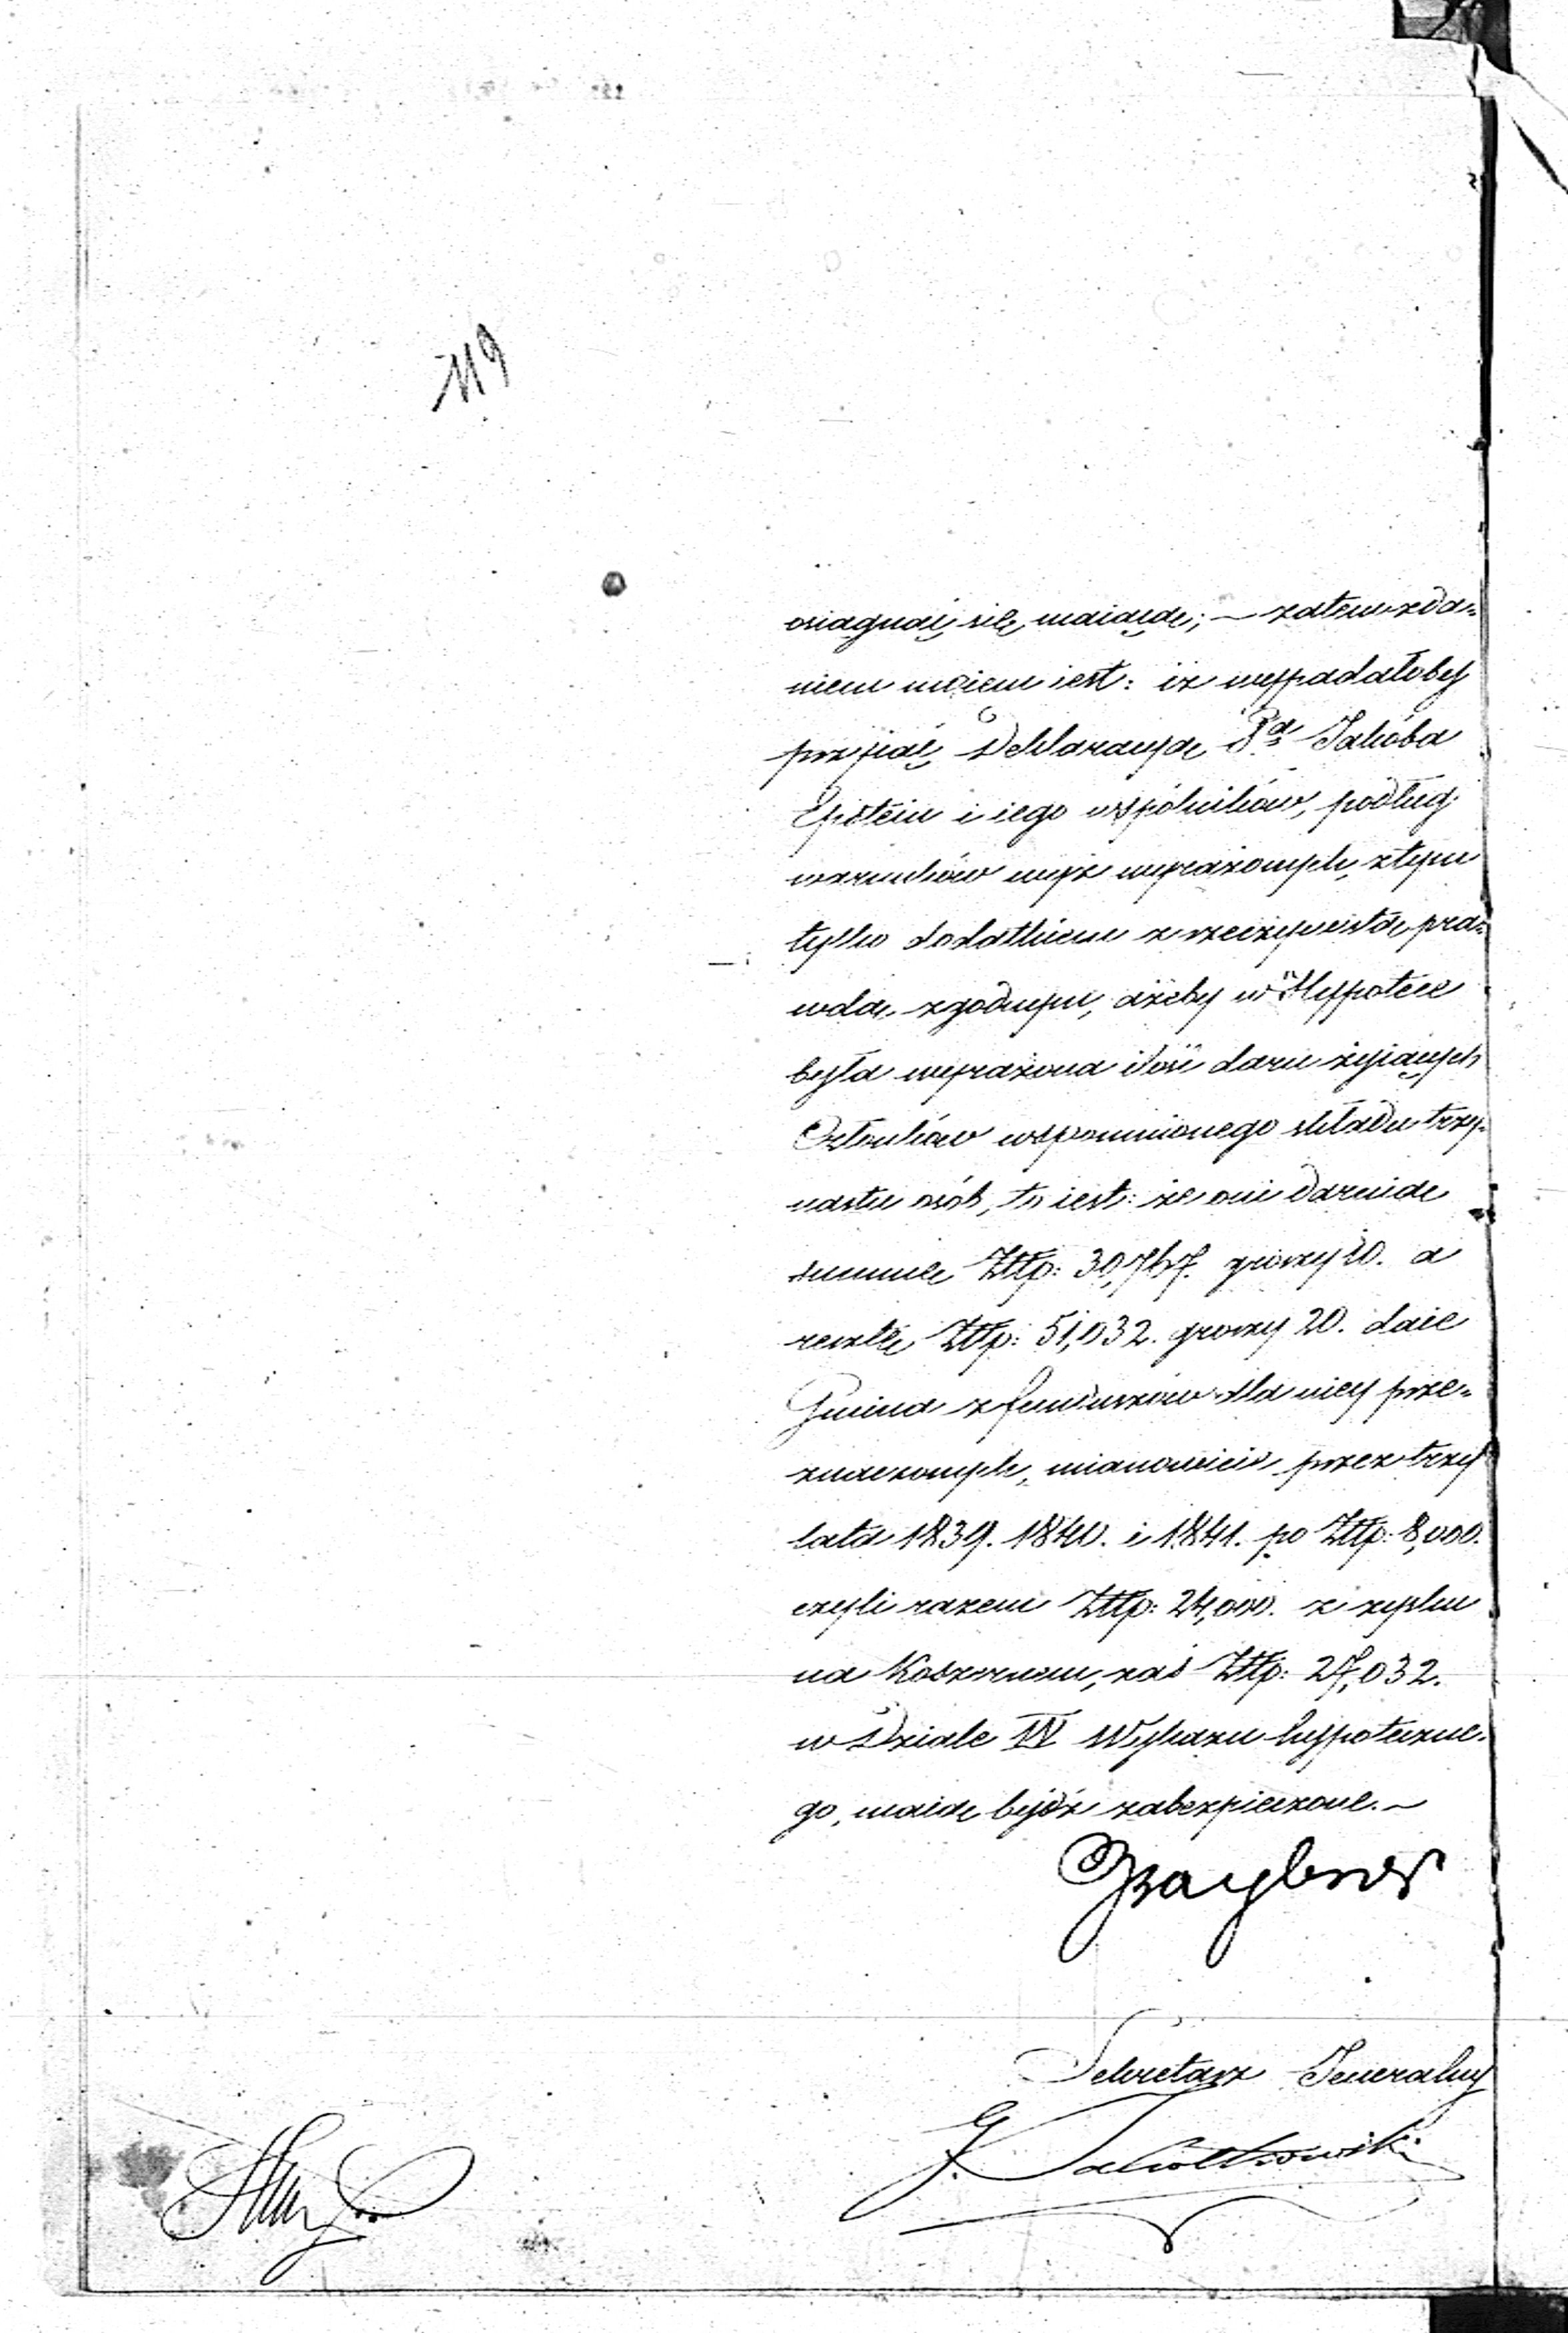 119
osiągnąć się maiącą; — zatem zda=
niem moiem iest: iż wypadałoby
przyjąć Deklaracyą Pa Jakóba
Epstein i iego wspólników, podług
warunków wyż wyrażonych, z tym
tylko dodatkiem z rzeczywistą pra=
wdą zgodnym, ażeby w Hypotece
była wyrażona ilość daru żyiących
Członków wspomnionego składu trzy=
nastu osób, to iest: że oni daruią
summę Złtp: 30,767. groszy 10. a
resztę Złtp: 51,032. groszy 20. daie
Gmina z funduszów dla niey prze=
znaczonych, mianowicie przez trzy
lata 1839. 1840. i 1841. po Złtp: 8,000.
czyli razem Złtp: 24,000. z zysku
na Koszernem, zaś Złtp: 27,032.
w Dziale IV Wykazu hypoteczne=
go, maią bydź zabezpieczone. —
Sekretarz Jeneralny